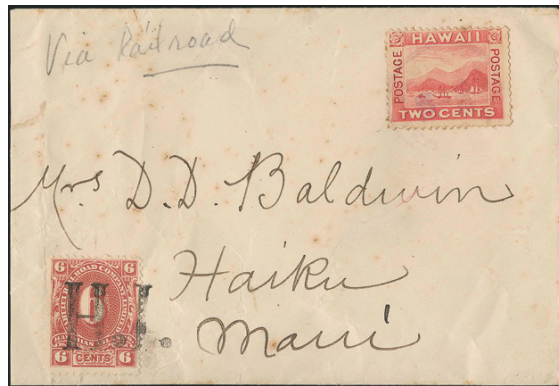 Via Railroad
HAWAII
POSTAGE POSTAGE
TWO CENTS
Mrs D. D. Baldwin
Haiku
Maui
6 6
RAILROAD COMPANY
6
H.
6 CENTS 6